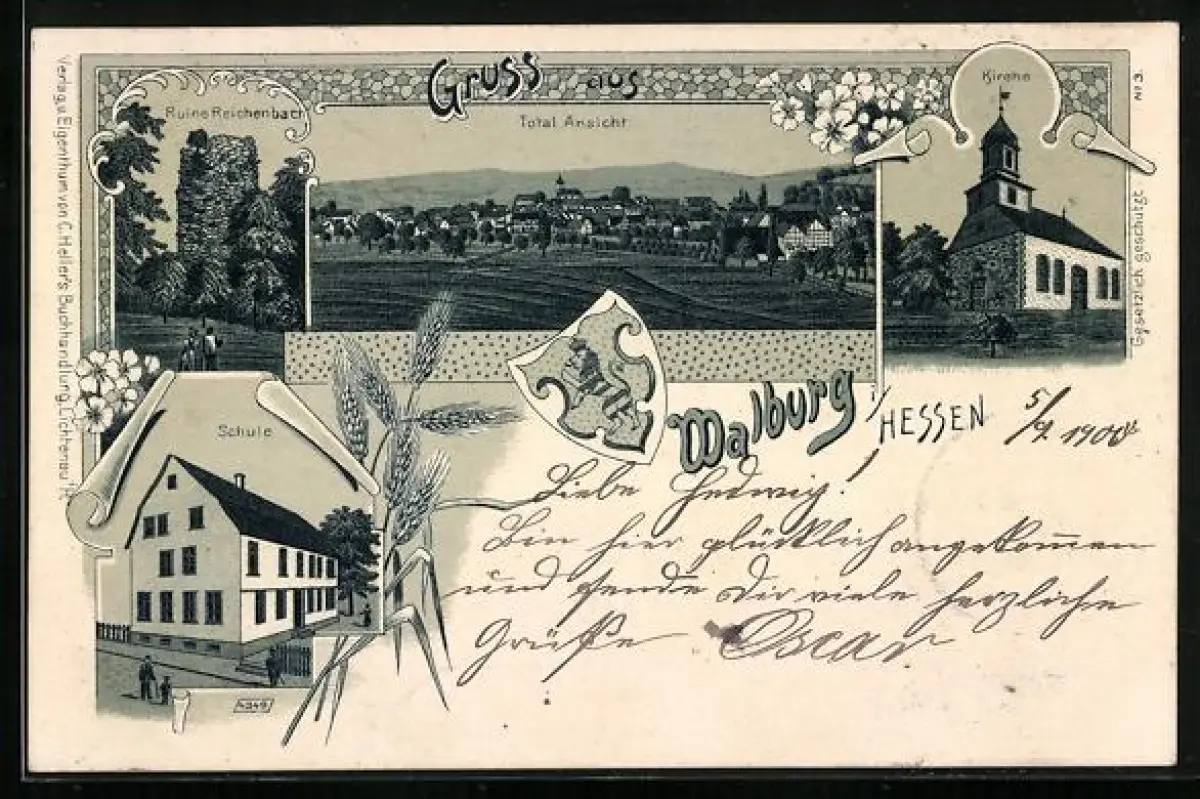 Gruss aus
Ruine Reichenbach
Total Ansicht
Kirche
No 3.
Verlag u. Eigenthum von C. Heller's Buchhandlung, Lichtenau i/H.
Gesetzlich geschützt
Schule
Walburg i/
HESSEN
5/9. 1900
Liebe Hedwig!
Bin hier glücklich angekommen
und sende Dir viele herzliche
Grüße Oscar
4349